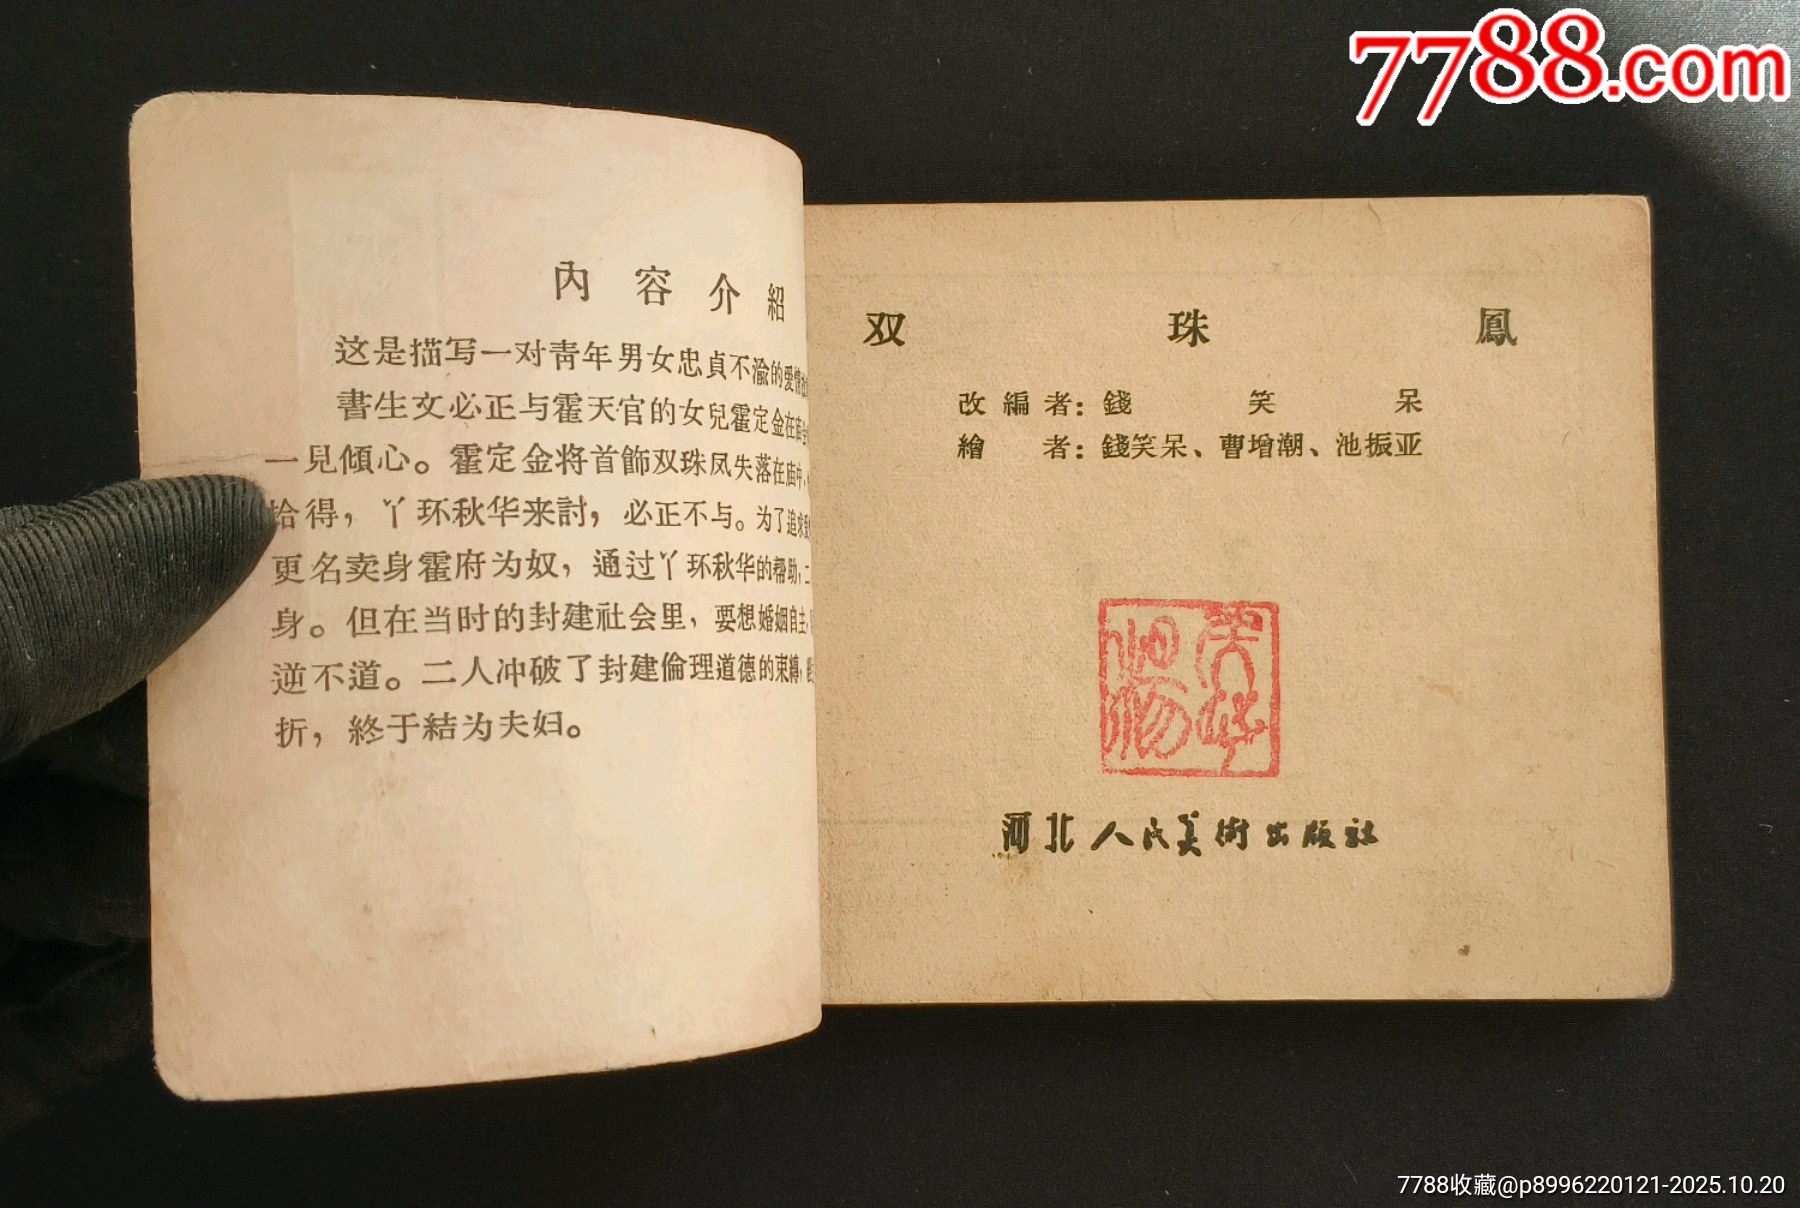 7788.com
內容介紹
这是描写一对青年男女忠貞不渝的爱情
書生文必正与霍天官的女兒霍定金在庙
一見傾心。霍定金将首飾双珠凤失落在庙中，
拾得，丫环秋华来討，必正不与。为了追求
更名卖身霍府为奴，通过丫环秋华的帮助，二
身。但在当时的封建社会里，要想婚姻自主，
逆不道。二人冲破了封建倫理道德的束縛，
折，終于結为夫妇。
双珠鳳
改編者：錢笑呆
繪者：錢笑呆、曹增潮、池振亚
河北人民美術出版社
7788收藏@p8996220121-2025.10.20